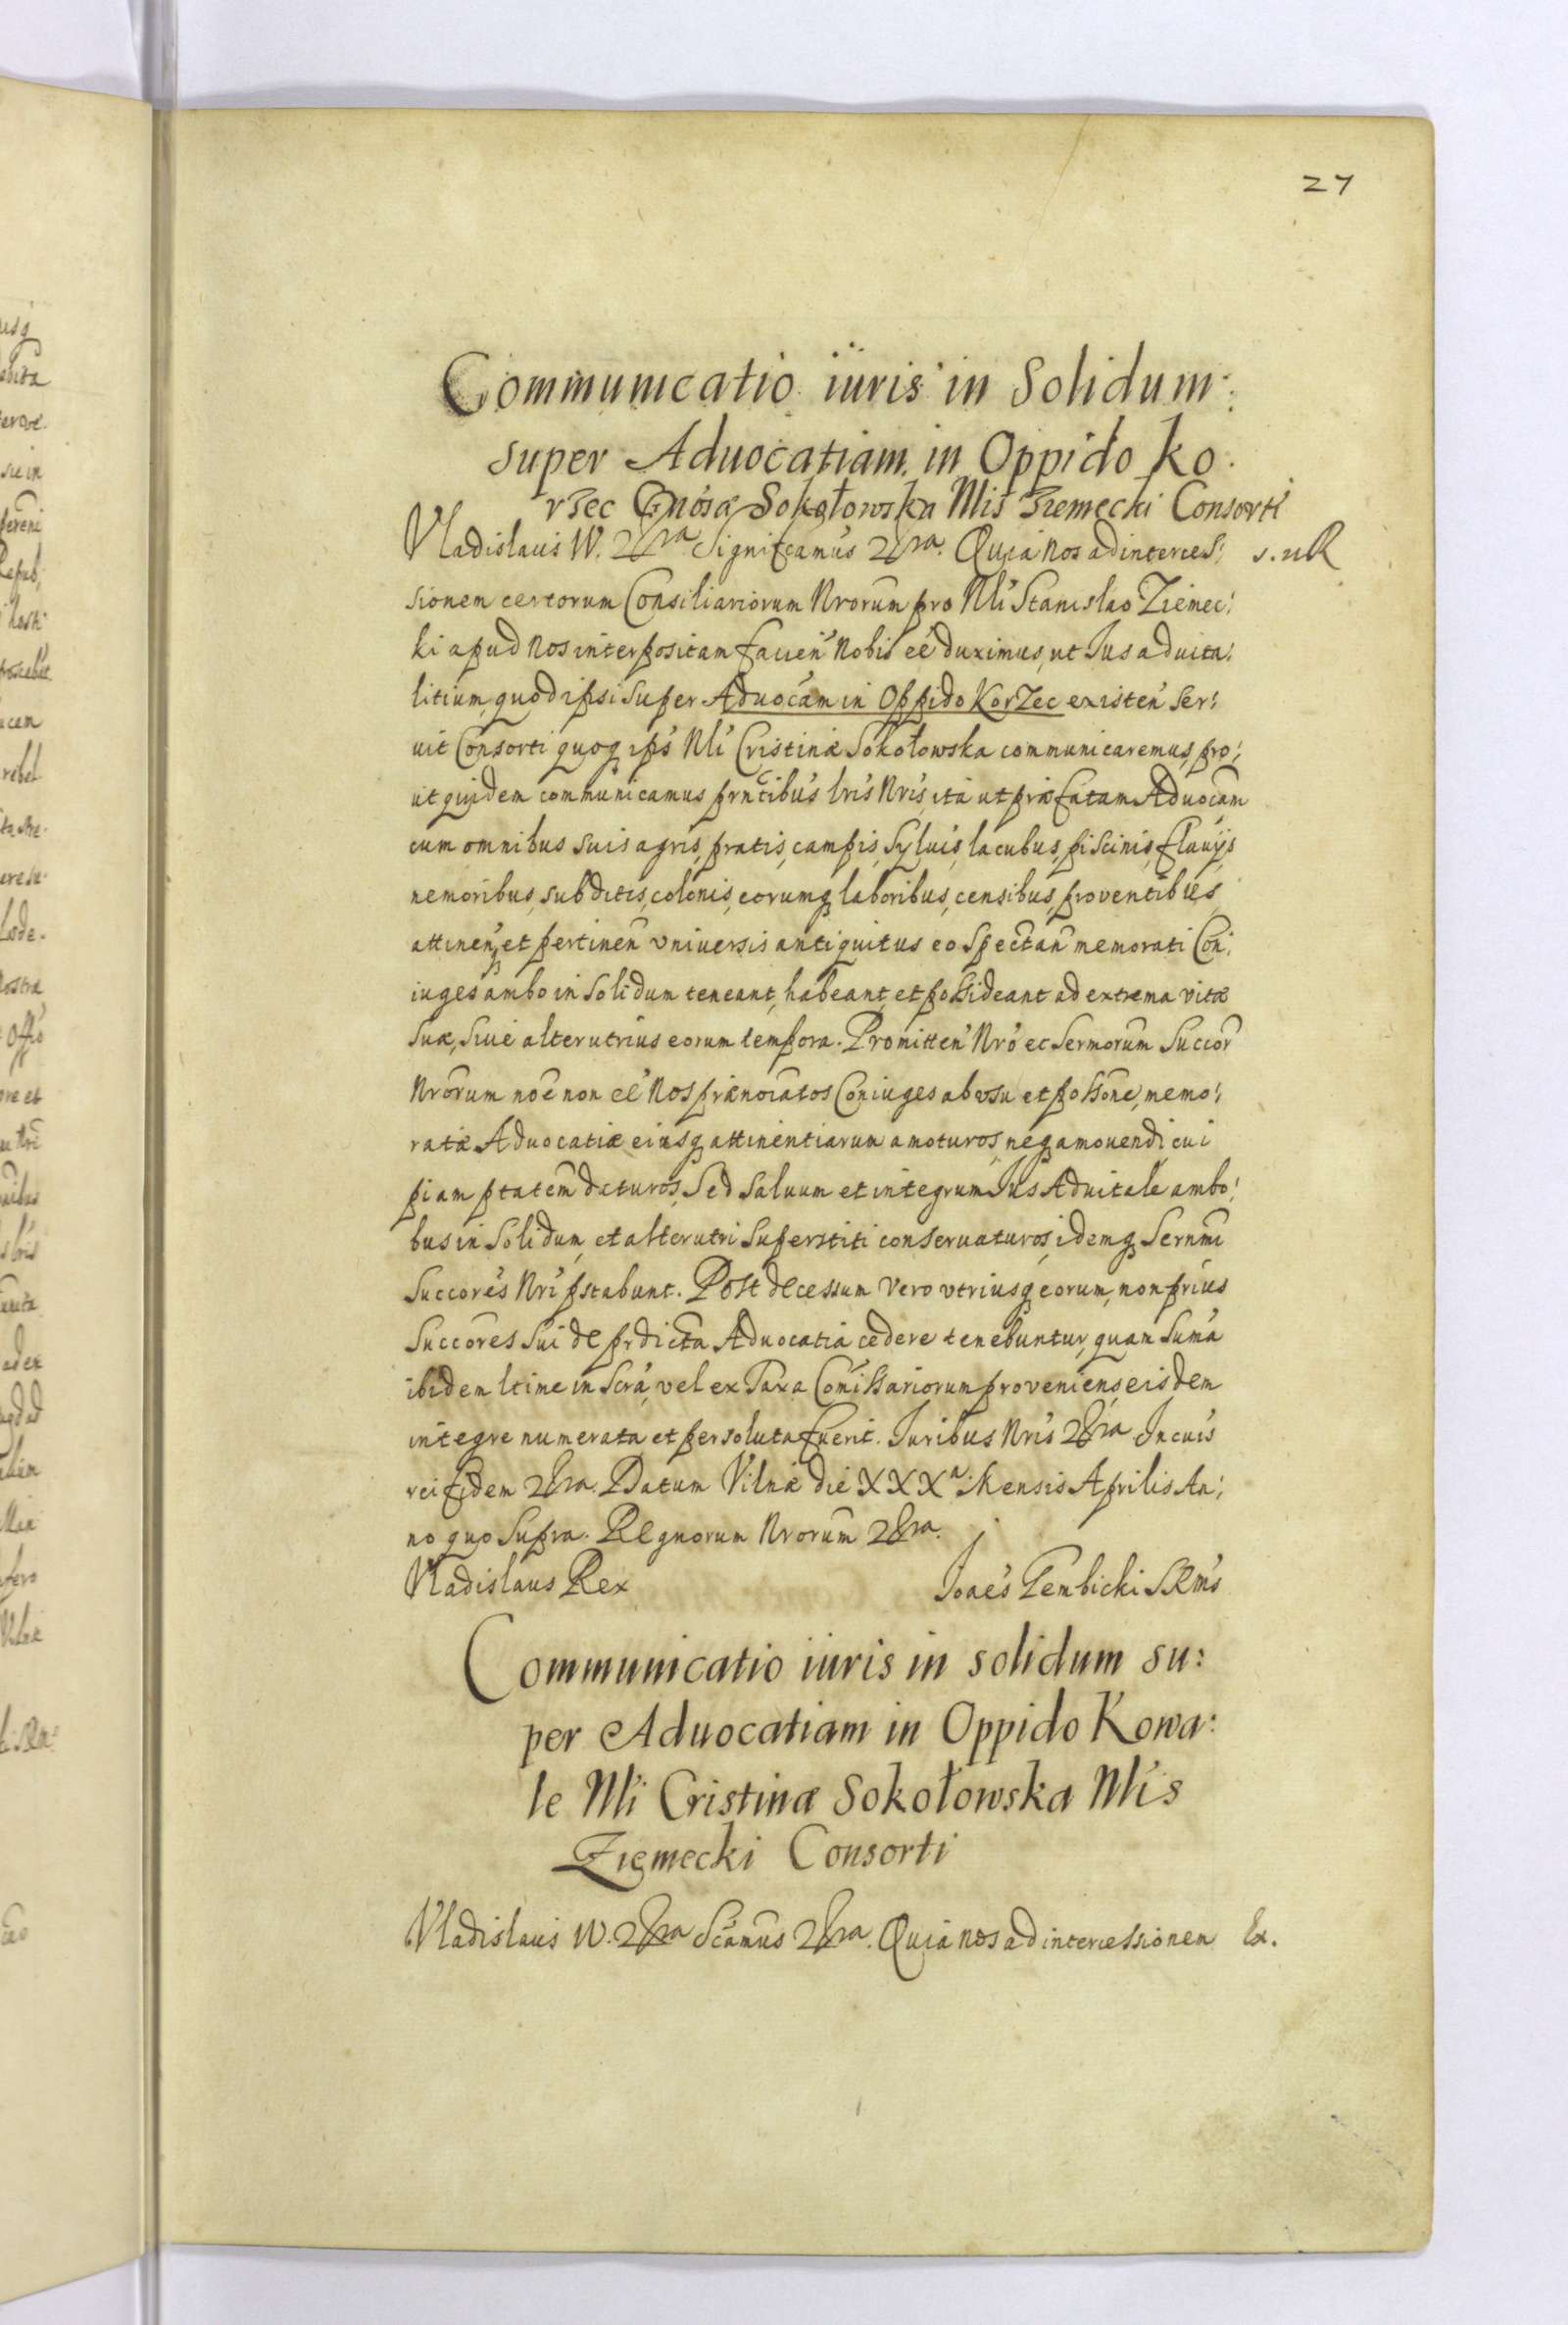 27
Communicatio iuris in Solidum:
super Aduocatiam in Oppido Ko.
rzec Gnosæ Sokołowska Nlis Ziemecki Consorti
Vladislaus IV. 2bra Significamus 2bra. Quia nos ad interces: s.nR
sionem certorum Consiliariorum Nrorum pro Nli Stanislao Ziemec:
ki apud nos interpositam facien nobis eé duximus, ut Ius aduita:
litium, quod ipsi super Aduocam in Oppido Korzec existen ser:
uit Consorti quoq ips Nli Cristinæ Sokołowska communicaremus, pro:
ut quidem communicamus prntibus lris Nris, ita ut præfatam Aduocam
cum omnibus suis agris, pratis, campis, syluis, lacubus, piscinis, fluuijs
nemoribus, subditis, colonis, eorumq laboribus, censibus, prouentibus
attinen, et pertinen vniuersis antiquitus eo spectan memorati Con:
iuges ambo in solidum teneant, habeant, et possideant ad extrema vitæ
suæ, siue alterutrius eorum tempora. Promitten Nro et Sermorum Succor
Nrorum noe non eé Nos prænoiatos Coniuges ab vsu et possone, memo:
ratæ Aduocatiæ eiusq attinentiarum amoturos, neq amouendi cui
piam ptatem daturos, Sed saluum et integrum Ius Aduitale ambo:
bus in solidum, et alterutri superstiti conseruaturos, idemq Sernmi
Succores Nri pstabunt. Post decessum vero vtriusq eorum, non prius
Succores sui de prdicta Aduocatia cedere tenebuntur, quam suma
ibidem ltime inscra, vel ex Taxa Comissariorum proueniens, eisdem
integre numerata et persoluta fuerit. Iuribus Nris 2bra In cuius
rei fidem 2bra. Datum Vilnæ die XXXa. Mensis Aprilis An:
no quo supra. Regnorum Nrorum 2bra.
Vladislaus Rex Ioaes Gembicki SRMs
Communicatio iuris in solidum su:
per Aduocatiam in Oppido Kowa:
le Nli Cristinæ Sokołowska Nlis
Ziemecki Consorti
Vladislaus IV. 2bra Scamus 2bra. Quia nos ad intercessionem Ex.